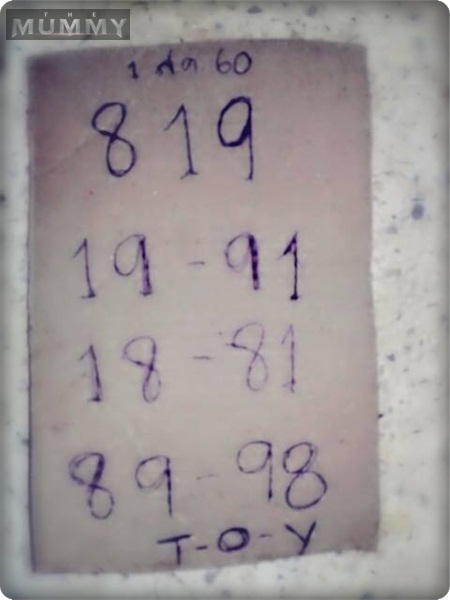 THE
MUMMY
1 สค 60
819
19-91
18-81
89-98
T-O-Y